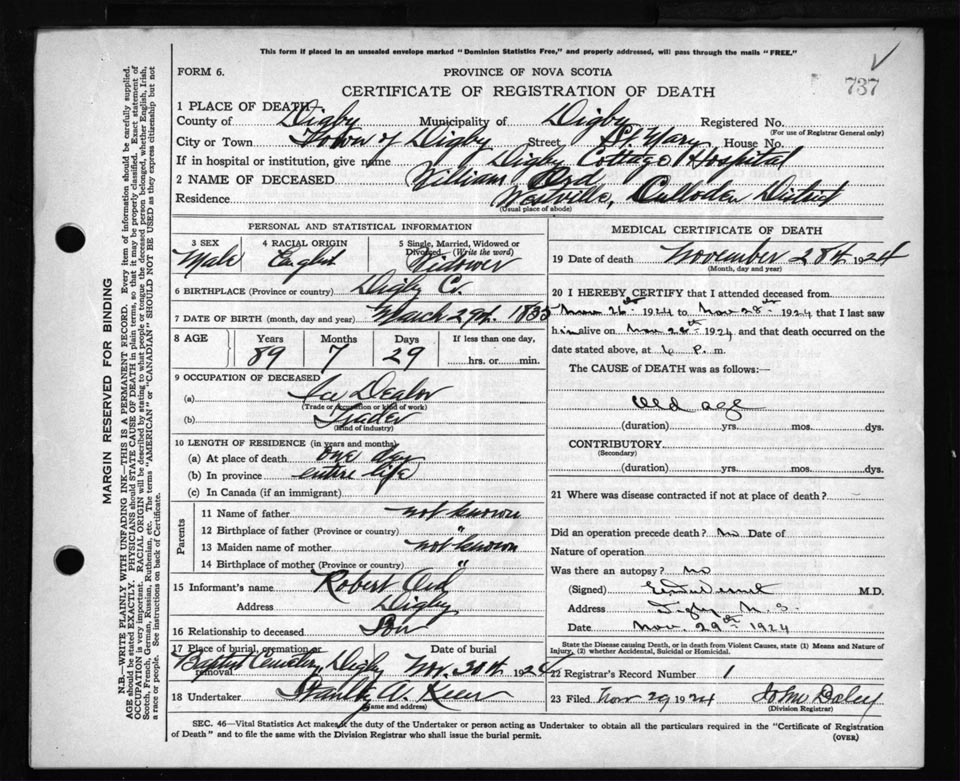 This form if placed in an unsealed envelope marked "Dominion Statistics Free," and properly addressed, will pass through the mails "FREE."
FORM 6.
PROVINCE OF NOVA SCOTIA
737
CERTIFICATE OF REGISTRATION OF DEATH
1 PLACE OF DEATH
County of Digby Municipality of Digby Registered No.
(For use of Registrar General only)
City or Town Town of Digby Street St. Mary House No.
If in hospital or institution, give name Digby Cottage Hospital
2 NAME OF DECEASED William Ord
Residence Westville, Culloden District
(Usual place of abode)
PERSONAL AND STATISTICAL INFORMATION
3 SEX 4 RACIAL ORIGIN 5 Single, Married, Widowed or Divorced (Write the word)
Male English Widower
6 BIRTHPLACE (Province or country) Digby Co.
7 DATE OF BIRTH (month, day and year) March 29th. 1835
8 AGE Years Months Days If less than one day,
89 7 29 hrs. or min.
9 OCCUPATION OF DECEASED
(a) Dealer
(Trade or occupation or kind of work)
(b) Trader
(Kind of industry)
10 LENGTH OF RESIDENCE (in years and months)
(a) At place of death one day
(b) In province entire life
(c) In Canada (if an immigrant)
Parents
11 Name of father not known
12 Birthplace of father (Province or country) "
13 Maiden name of mother not known
14 Birthplace of mother (Province or country) "
15 Informant's name Robert Ord
Address Digby
16 Relationship to deceased Son
17 Place of burial, cremation or removal Date of burial
Baptist Cemetery Digby Nov. 30th. 1924
18 Undertaker Stanley A.
(Name and address)
MEDICAL CERTIFICATE OF DEATH
19 Date of death November 28th. 1924
(Month, day and year)
20 I HEREBY CERTIFY that I attended deceased from
26th 1924 to Nov 28th 1924 that I last saw
him alive on Nov 28th 1924, and that death occurred on the
date stated above, at 6 P. m.
The CAUSE of DEATH was as follows:—
Old age
(duration) yrs. mos. dys.
CONTRIBUTORY
(Secondary)
(duration) yrs. mos. dys.
21 Where was disease contracted if not at place of death?
Did an operation precede death? No Date of
Nature of operation
Was there an autopsy? no
(Signed) M.D.
Address Digby N. S.
Date Nov. 29th 1924
State the Disease causing Death, or in death from Violent Causes, state (1) Means and Nature of Injury, (2) whether Accidental, Suicidal or Homicidal.
22 Registrar's Record Number 1
23 Filed Nov 29 1924 John Daley
(Division Registrar)
SEC. 46—Vital Statistics Act makes it the duty of the Undertaker or person acting as Undertaker to obtain all the particulars required in the "Certificate of Registration
of Death" and to file the same with the Division Registrar who shall issue the burial permit.
(OVER)
MARGIN RESERVED FOR BINDING
N.B.—WRITE PLAINLY WITH UNFADING INK—THIS IS A PERMANENT RECORD. Every item of information should be carefully supplied.
AGE should be stated EXACTLY. PHYSICIANS should STATE CAUSE OF DEATH in plain terms, so that it may be properly classified. Exact statement of
OCCUPATION is very important. RACIAL ORIGIN will be described by stating to what people or tongue the deceased person belonged, whether English, Irish,
Scotch, French, German, Russian, Ruthenian, etc. The terms "AMERICAN" or "CANADIAN" SHOULD NOT BE USED as they express citizenship but not
a race or people. See instructions on back of Certificate.